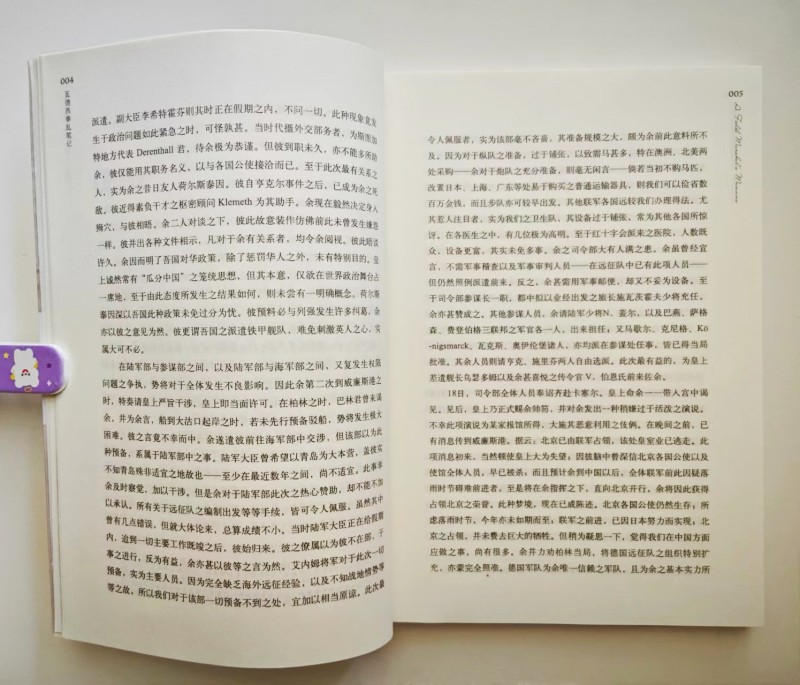 004
瓦德西拳乱笔记
派遣。副大臣李希特霍芬则其时正在假期之内，不问一切。此种现象竟发
生于政治问题如此紧急之时，可怪孰甚。当时代摄外交部务者，为斯图加
特地方代表 Derenthall 君，待余极为恭懂。但彼到职未久，亦不能多所助
余，彼仅能用其职务名义，以与各国公使接洽而已。至于此次最有关系之
人，实为余之昔日友人荷尔斯泰因。彼自亨克尔事件之后，已成为余之死
敌。彼近得素负干才之枢密顾问 Klemeth 为其助手。余现在毅然决定身入
狮穴，与彼相晤。余二人对谈之下，彼此故意装作仿佛前此未曾发生嫌怨
一样。彼并出各种文件相示，凡对于余有关系者，均令余阅视。彼此晤谈
许久。余因而明了吾国对华政策，除了惩罚华人之外，未有特别目的。皇
上诚然常有“瓜分中国”之笼统思想，但其本意，仅欲在世界政治舞台占
一席地，至于由此态度所发生之结果如何，则未尝有一明确概念。荷尔斯
泰因深以吾国此种政策未免过分为忧。彼预料必与列强发生许多纠葛，余
亦以彼之意见为然。彼更谓吾国之派遣铁甲舰队，难免刺激英人之心，实
属大可不必。
在陆军部与参谋部之间，以及陆军部与海军部之间，又复发生权限
问题之争执，势将对于全体发生不良影响。因此余第二次到威廉斯港之
时，特奏请皇上严旨干涉，皇上即当面许可。在柏林之时，巴林君曾来谒
余，并为余言，船到大沽口起岸之时，若未先行预备驳船，势将发生极大
困难。彼之言竟不幸而中。余遂遣彼前往海军部中交涉，但该部以为此
种预备，系属于陆军部中之事。陆军大臣曾希望以青岛为大本营，盖彼实
不知青岛殊非适宜之地故也——至少在最近数年之间，尚不适宜。此事幸
余及时察觉，加以干涉。但是余对于陆军部此次之热心赞助，却不能不加
以承认。所有关于远征队之编制出发等等手续，皆可令人佩服。虽然其中
曾有几点错误，但就大体论来，总算成绩不小。当时陆军大臣正在给假期
内，迨到一切主要工作既竣之后，彼始归来。彼之僚属以为彼不在部，于
事之进行，反为有益，余亦甚以彼等之言为然。艾内姆将军对于此次一切
预备，实为主要人员。因为完全缺乏海外远征经验，以及不知战地情势等
等之故，所以我们对于该部一切预备不到之处，宜加以相当原谅。此次最
005
令人佩服者，实为该部毫不吝啬，其准备规模之大，颇为余前此意料所不
及。因为对于纵队之准备，过于铺张，以致需马甚多，特在澳洲、北美两
处采购——余对于炮队之充分准备，则毫无闲言——倘若当初不购马匹，
改置日本、上海、广东等处易于购买之普通运输器具，则我们可以俭省数
百万金钱，而且步队亦可较早出发。其他联军各国远较我们办理得法。尤
其惹人注目者，实为我们之卫生队，其设备过于铺张，常为其他各国所惊
讶。在各医生之中，有几位极为高明。至于红十字会派来之医院，人数既
众，设备更富，其实未免多事。余之司令部大有人满之患。余虽曾经宣
言，不需军事稽查以及军事审判人员——在远征队中已有此项人员——
但仍然照例派遣前来。反之，余甚需用军事邮便，却又不妥为设备。至
于司令部参谋长一职，都中拟以业经出发之旅长施瓦茨霍夫少将充任，
余亦甚赞成之。其他参谋人员，余请陆军少将N、盖尔，以及巴燕、萨格
森、费登伯格三联邦之军官各一人，出来担任；又马歇尔、克尼格、Kö-
nigsmarck、瓦克斯、奥伊伦堡诸人，亦均派在参谋处任事，皆已得当局
批准。其余人员则请亨克、施里芬两人自由选派。此次最有益的，为皇上
差遣舰长乌瑟多姆以及余甚喜悦之传令官 V、伯恩氏前来佐余。
18日，司令部全体人员奉诏齐赴卡塞尔。皇上命余一一带入宫中谒
见。见后，皇上乃正式赐余帅笏，并对余发出一种稍嫌过于活改之演说。
不幸此项演说为某家报馆所得，大施其恶意利用之伎俩。在晚间之前，已
有消息传到威廉斯港。据云：北京已由联军占领，该处皇室业已逃走。此
项消息初来，当然顿使皇上大为失望。因彼脑中曾深信北京各国公使以及
使馆全体人员，早已被杀，而且预计余到中国以后，全体联军前此因疑落
雨时节碍难前进者，至是将在余指挥之下，直向北京开行，余将因此获得
占领北京之荣誉。此种梦境，现在已成陈迹。北京各国公使仍然生存；所
虑落雨时节，今年亦未如期而至；联军之前进，已因日本努力而实现；北
京之占领，并未费去巨大的牺牲。但稍为凝思一下，觉得我们在中国方面
应做之事，尚有很多。余并力劝柏林当局，将德国远征队之组织特别扩
充，亦蒙完全照准。德国军队为余唯一信赖之军队，且为余之基本实力所